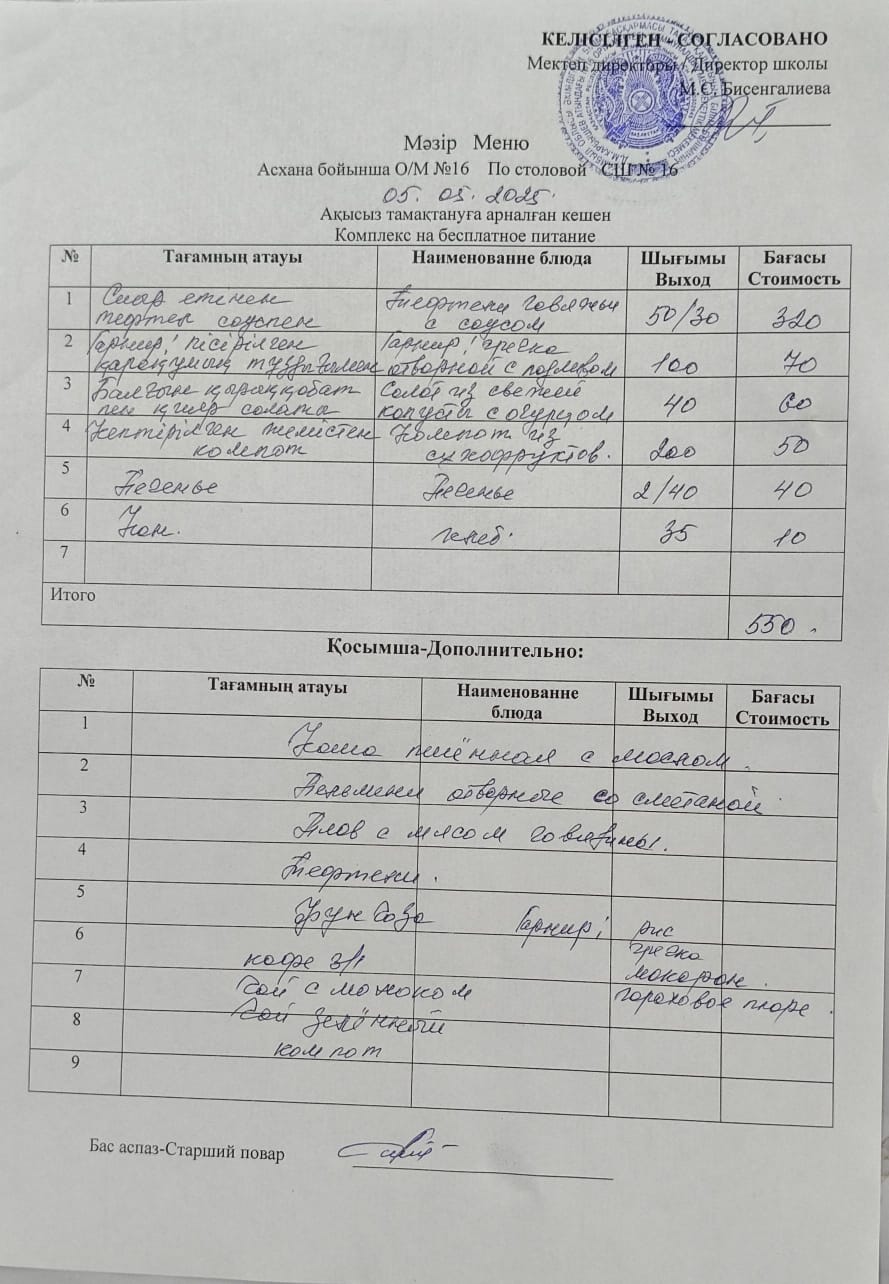 КЕЛІСІЛГЕН - СОГЛАСОВАНО
Мектеп директоры / Директор школы
М.С. Бисенгалиева
Мәзір Меню
Асхана бойынша О/М №16 По столовой СШ № 16
05. 05. 2025.
Ақысыз тамақтануға арналған кешен
Комплекс на бесплатное питание
№ Тағамның атауы Наименованне блюда Шығымы Выход Бағасы Стоимость
1 Сиыр етінен тефтел соуспен Тефтели говяжьи с соусом 50/30 320
2 Гарнир: пісірілген қарақұмық Гарнир: гречка отворной с подливом 100 70
3 Балғын қырыққабат пен қияр салаты Солот из свежей копусты с огурцом 40 60
4 Кептірілген жемістен компот Компот из сухофруктов. 200 50
5 Печенье Печенье 2/40 40
6 Нан. хлеб. 35 10
7
Итого
550.
Қосымша-Дополнительно:
№ Тағамның атауы Наименованне блюда Шығымы Выход Бағасы Стоимость
1 Каша пшённая с маслом.
2 Пельмени отворные со сметаной
3 Плов с мясом говядины.
4 Тефтели.
5 Фунчоза Гарнир: рис
6 гречка
кофе 3/1 макарон.
7 Чай с молоком гороховое пюре.
8 Чай зелённый
компот
9
Бас аспаз-Старший повар